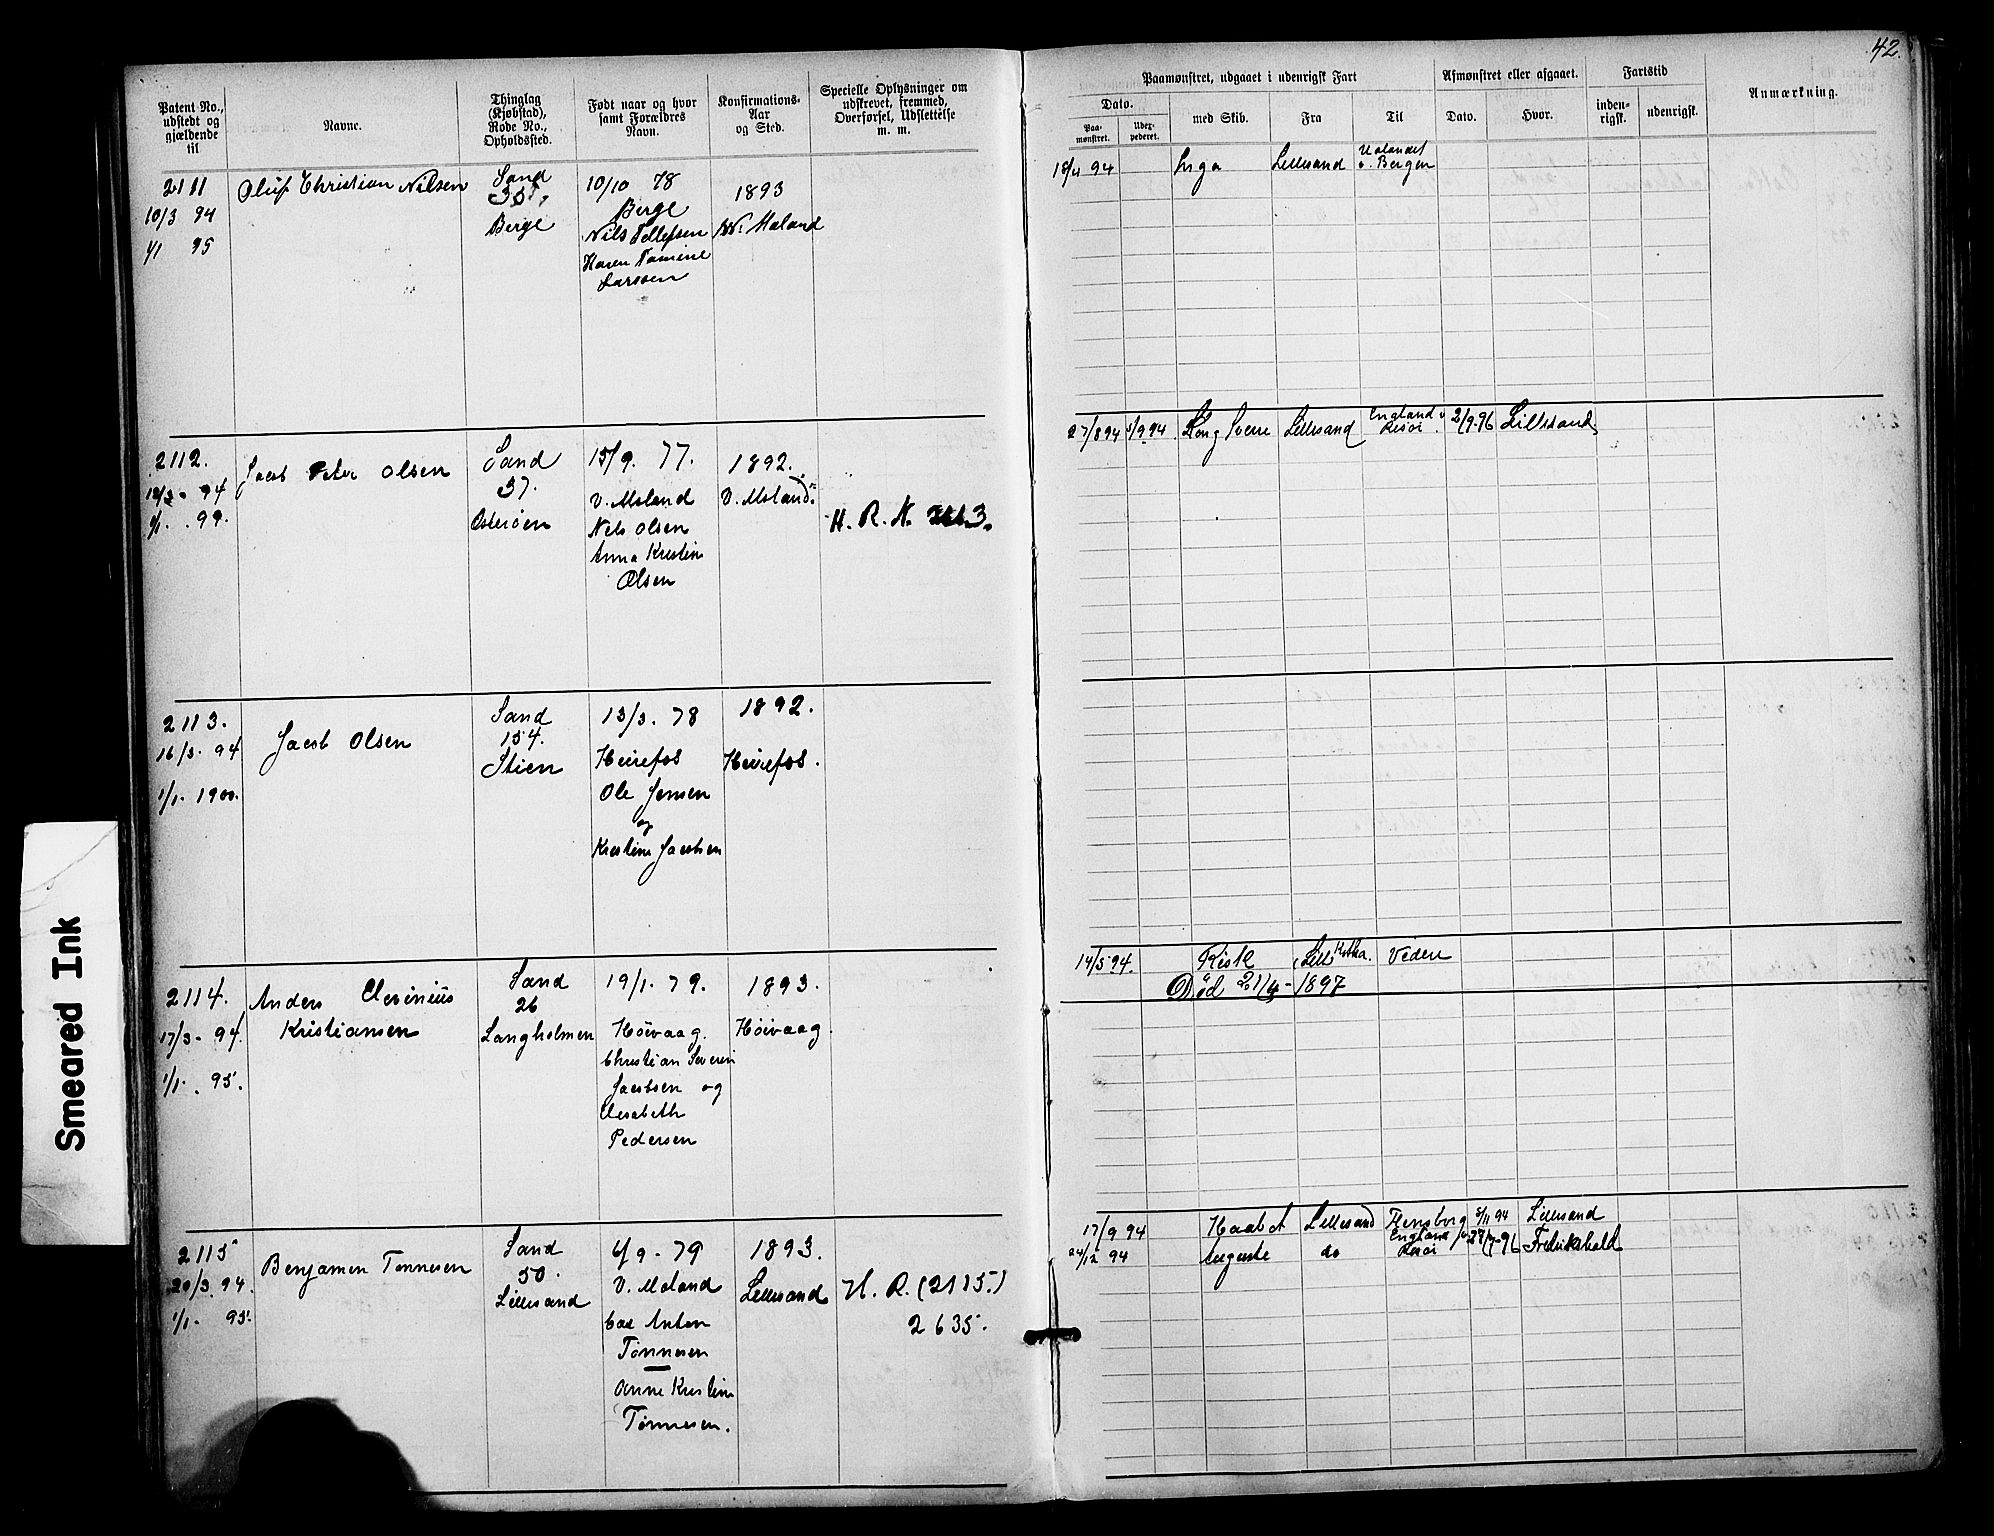 42.
Patent No., udstedt og gjældende til
Navne.
Thinglag (Kjøbstad), Rode No., Opholdssted.
Født naar og hvor samt Forældres Navn.
Konfirmations-Aar og Sted.
Specielle Oplysninger om udskrevet, fremmed, Overførsel, Udslettelse m. m.
Paamønstret, udgaaet i udenrigsk Fart
Afmønstret eller afgaaet.
Fartstid
Anmærkning.
Dato.
Paa-mønstret.
Udex-pederet.
med Skib.
Fra
Til
Dato.
Hvor.
inden-rigsk.
udenrigsk.
2111
10/3 94
1/1 95
Oluf Christian Nilsen
Sand
Berge
10/10 78
Berge
Nils Tellefsen
Karen Tomine
Larssen
1893
W. Moland
18/4 94
Inga
Lillesand
Udlandet
v. Bergen
2112.
94
1/1. 99.
Jacob Peter Olsen
Sand
37.
Osterøen
15/9. 77.
V. Moland
Nels Olsen
Anna Kristin
Olsen
1892.
V. Moland
H. R. N. 3.
27/8 94
5/9 94
Kong Sverre
Lillesand
England v
Risör.
2/9.96
Lillesand
2113.
16/3. 94
1/1. 1900.
Jacob Olsen
Sand
154.
Stien
13/3. 78
Heirefos
Ole Jensen
og
Kristine Jacobsen
1892.
Heirefos.
2114.
17/3. 94.
1/1. 95.
Anders
Kristiansen
Sand
26
Langholmen
19/1. 79.
Höivaag.
Christian Severin
Jacobsen og
Elesabeth
Pedersen
1893.
Höivaag
14/5 94.
Risk
Lill
Død 21/4 - 1897
2115
20/3. 94.
1/1. 95.
Benjamen Tønnesen
Sand
50.
Lillesand
6/9 - 79
V. Moland
Anton
Tønnesen
Anne Kristine
Tønnesen.
1893.
Lillesand
H. R. (2115.)
2635.
17/9 94
Haabet
Lillesand
Flensborg
5/11 94
Lillesand
24/12 94
Auguste
do
England
Risör
96
Fredrikshald
Smeared Ink